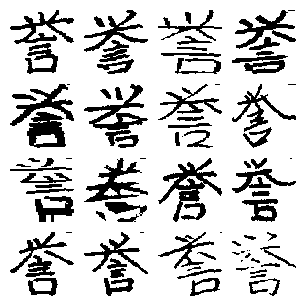 誉誉誉誉
誉誉誉誉
誉誉誉誉
誉誉誉誉